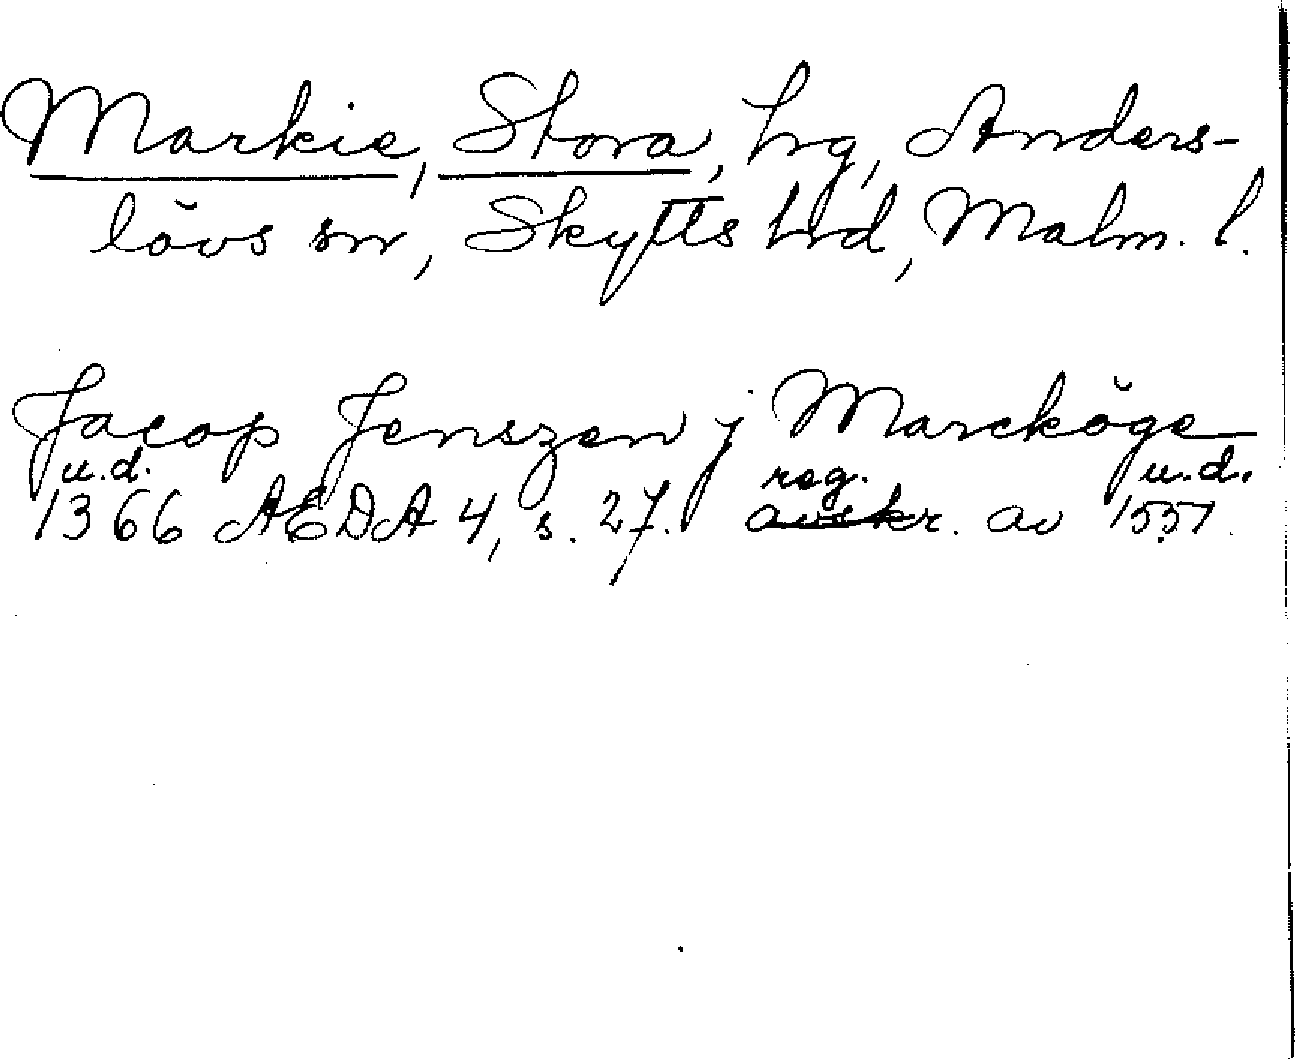 Markie, Stora, hrg, Anders-
lövs sn, Skytts hrd, Malm. l.
Jacop Jenszen j Marckőge
u.d. reg. u.d.
1366 AEDA 4, s. 27. avskr. av 1551.